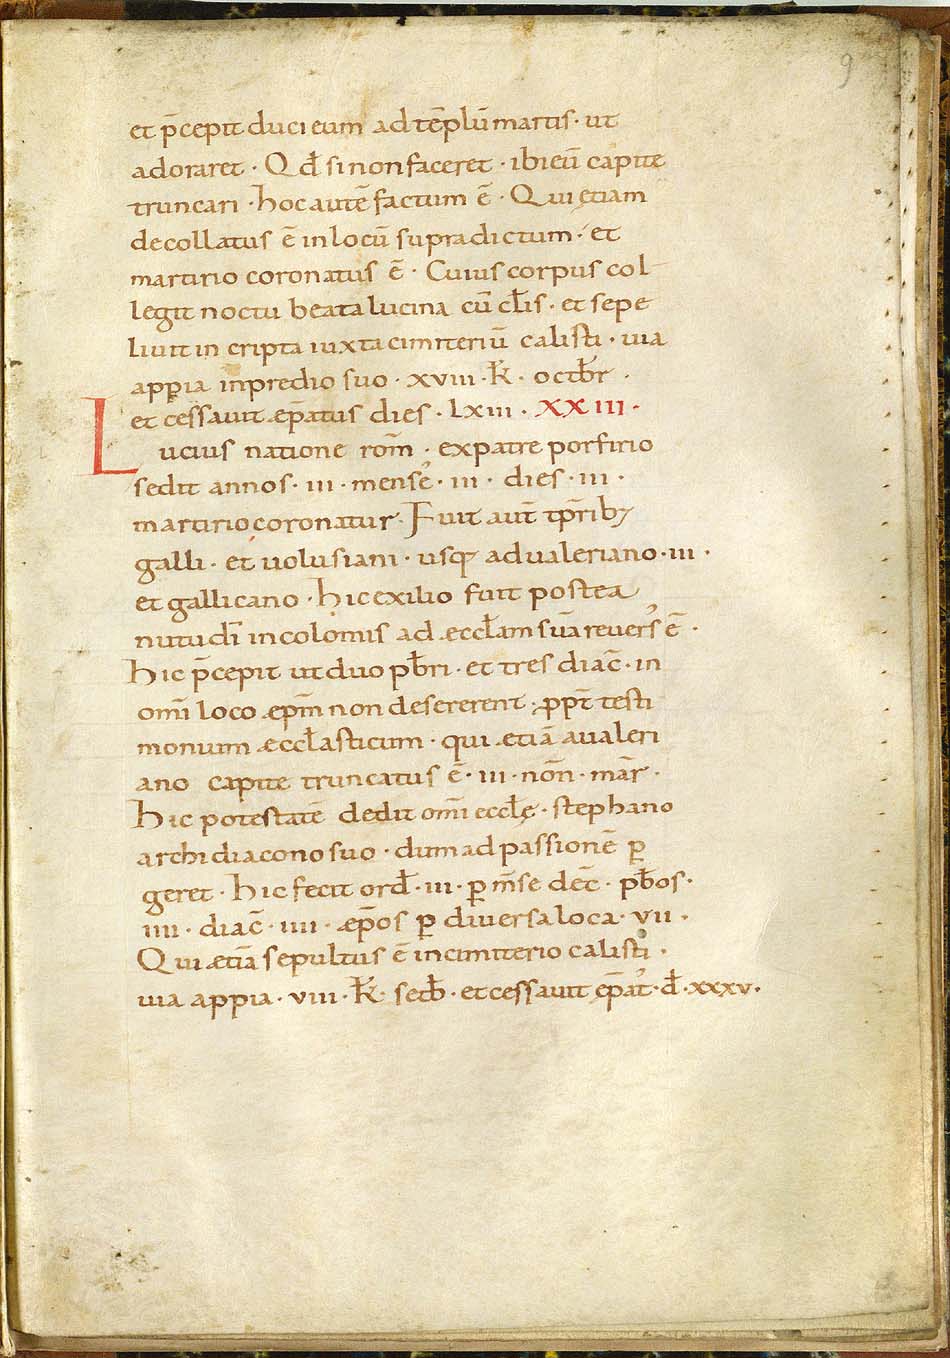 9
et p̄cepit duci eum ad tēplū martis · ut
adoraret · Qđ si non faceret · ibi eū capite
truncari · hoc autē factum ē · Qui ętiam
decollatus ē in locū supradictum · et
martirio coronatus ē · Cuius corpus col
legit noctu beata lucina cū cl̄is · et sepe
liuit in cripta iuxta cimiteriū calisti · uia
appia in predio suo · xviii · k̄ · octb̄r ·
et cessauit æp̄atus dies · lxiii · XXIII ·
Lucius natione rom̄ · ex patre porfirio
sedit annos · iii · mense᾿ · iii · dies · iii ·
martirio coronatur · Fuit aut̄ tp̄rib;
galli · et uolusiani · usq; ad ualeriano · iii ·
et gallicano · hic exilio fuit postea
nutu dī incolomis ad æccl̄am suā reuers᾿ ē ·
hic p̄cepit ut duo pb̄ri · et tres diac̄ · in
om̄i loco æpm̄ non desererent · ꝓpt̄ testi
monium æccl̄asticum · qui ætiā a ualeri
ano capite truncatus ē · iii · nōn · mar̄ ·
hic potestatē dedit om̄i eccl̄ę · stephano
archidiacono suo · dum ad passionē ꝑ
geret · hic fecit ord̄ · iii · ꝑ m̄se dec̄ · pb̄os ·
iiii · diac̄ · iiii · æp̄os ꝑ diuersa loca · vii ·
Qui ætiā sepultus ē in cimiterio calisti ·
uia appia · viii · k̄ · setb̄ · et cessauit ęp̄at᾿ · d̄ · xxxv ·